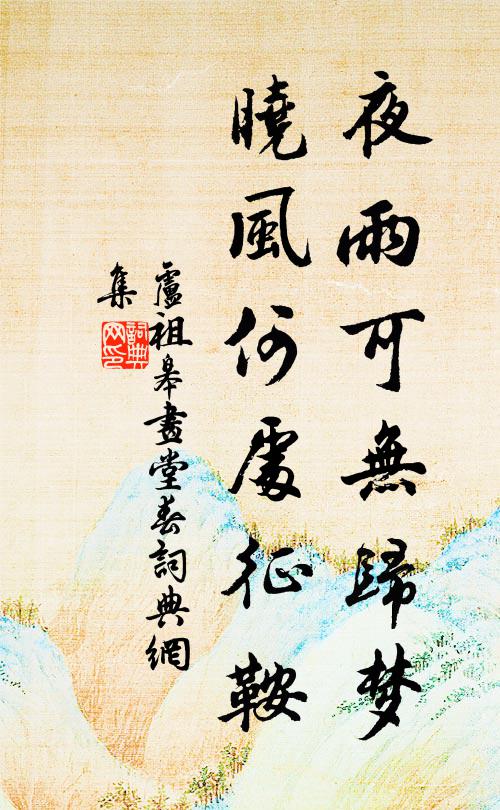 夜雨可無歸梦
曉風何處征鞍
盧祖皋畫堂春詞典網
集
詞典网印